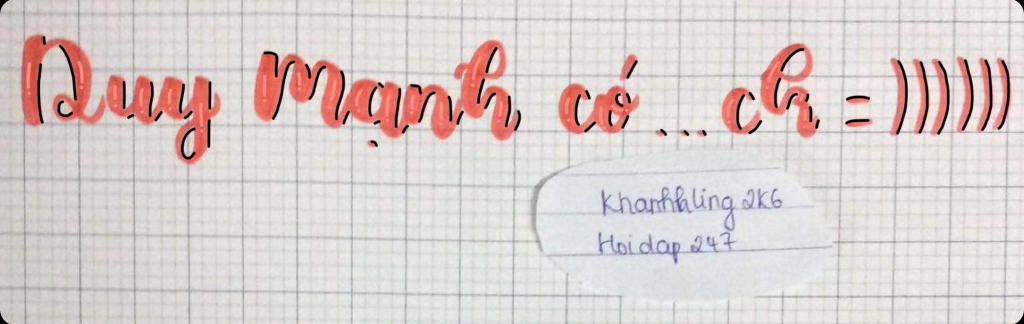 Quy Mạnh có ... ch = ))))))
Khanhhling 2K6
Hoidap 247